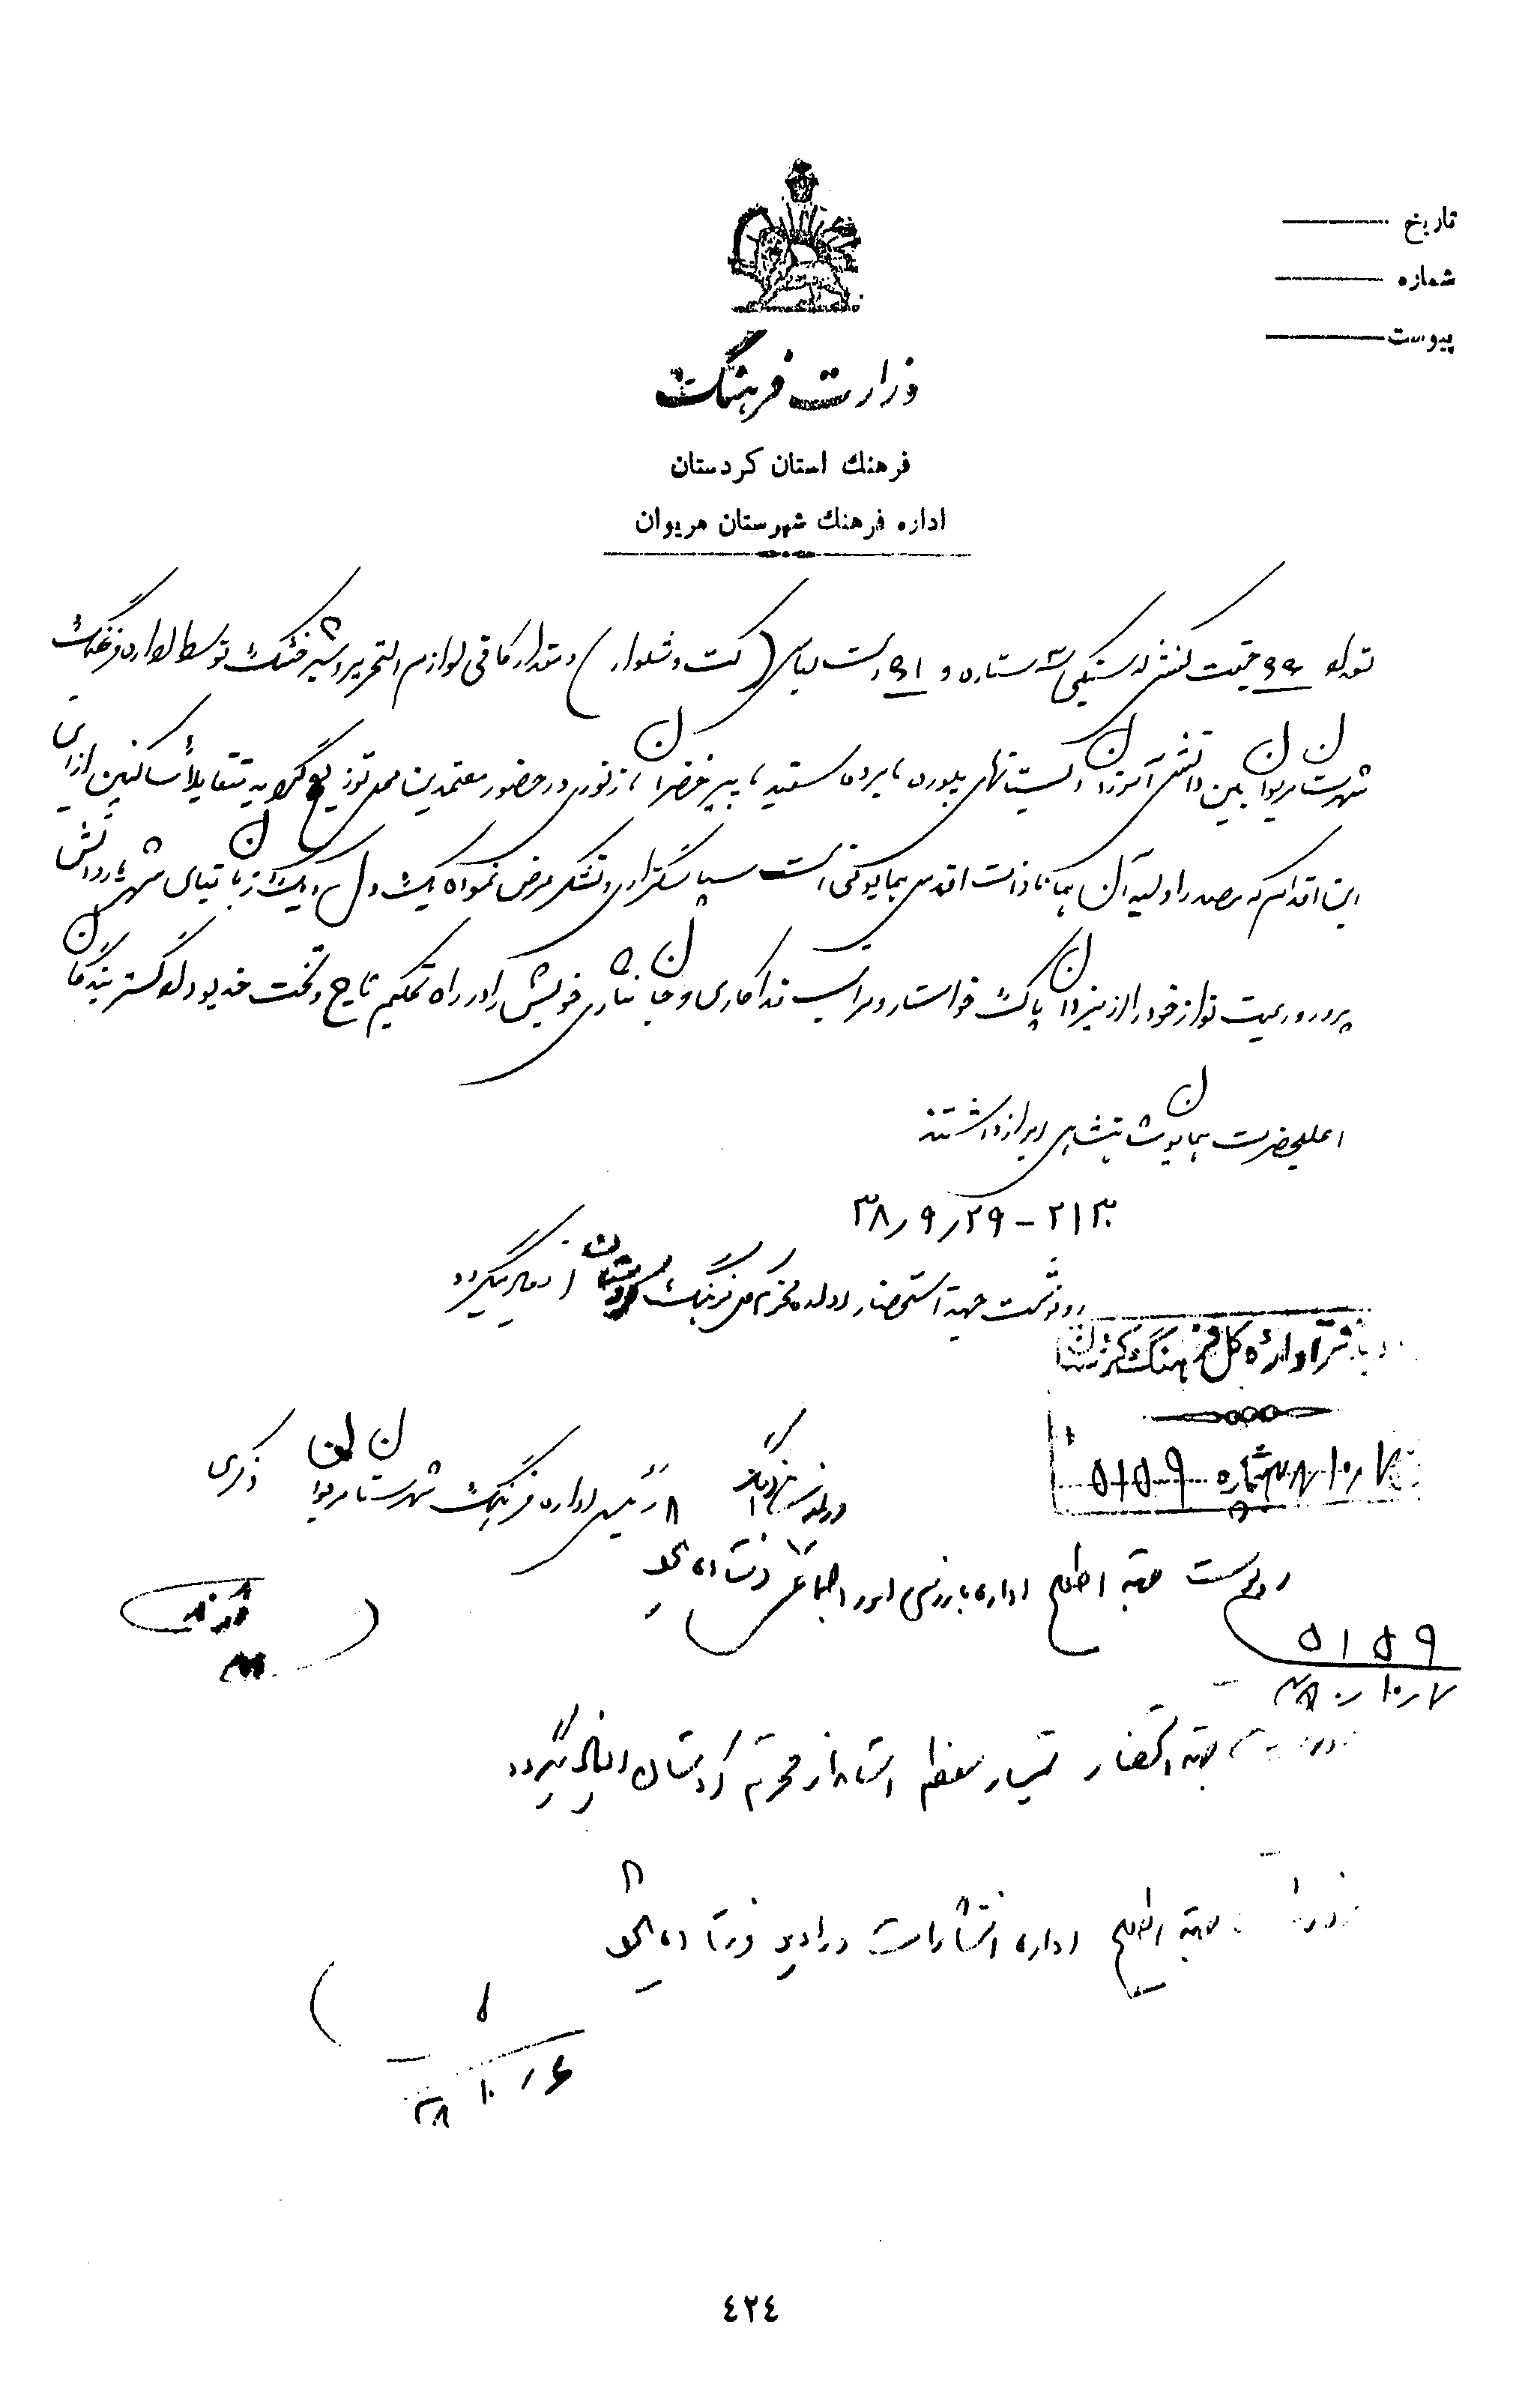 تاریخ
شماره
پیوست
وزارت فرهنگ
فرهنك استان كردستان
اداره فرهنك شهرستان مریوان
تعداد ۶۶ جفت کفش لاستیکی سه ستاره و ۵۱ دست لباس (کت و شلوار) و مقدار کافی لوازم التحریر و شیر خشک توسط اداره فرهنگ
شهرستان مریوان بین دانش آموزان دبستانهای بلوره، برده سفید، پیر خضران، زنوری در حضور معتمدین محل توزیع گردید متقابلاً ساکنین ازای
این اقدام که مصدر اولیه آن همانا ذات اقدس همایونی است سپاسگزاری و تشکر عرض نموده یک دل و یک زبان بقای شهریار دانش
پرور و رعیت نواز خود را از یزدان پاک خواستار و مراتب فداکاری و جانبازی خویش را در راه تحکیم تاج و تخت خدیو دادگستر بندگان
اعلیحضرت همایون شاهنشاهی ابراز داشتند
۲۱۳۰ - ۳۸٫۹٫۲۹
رونوشت جهة استحضار اداره محترم کل فرهنگ کردستان انفاد میگردد
دفتر اداره کل فرهنگ کردستان
۳۸٫۱۰٫۷ شماره ۵۱۵۹
رئیس اداره فرهنگ شهرستان مریوان ذکری
رونوشت جهة اطلاع اداره بازرسی امور اجتماعی فرستاده میشود
۵۱۵۹
۳۸٫۱۰٫۷
جهة استحضار تیمسار معظم استاندار محترم کردستان انفاد میگردد
جهة اطلاع اداره انتشارات و رادیو فرستاده میشود
۳۸٫۱۰٫۶
٤٢٤